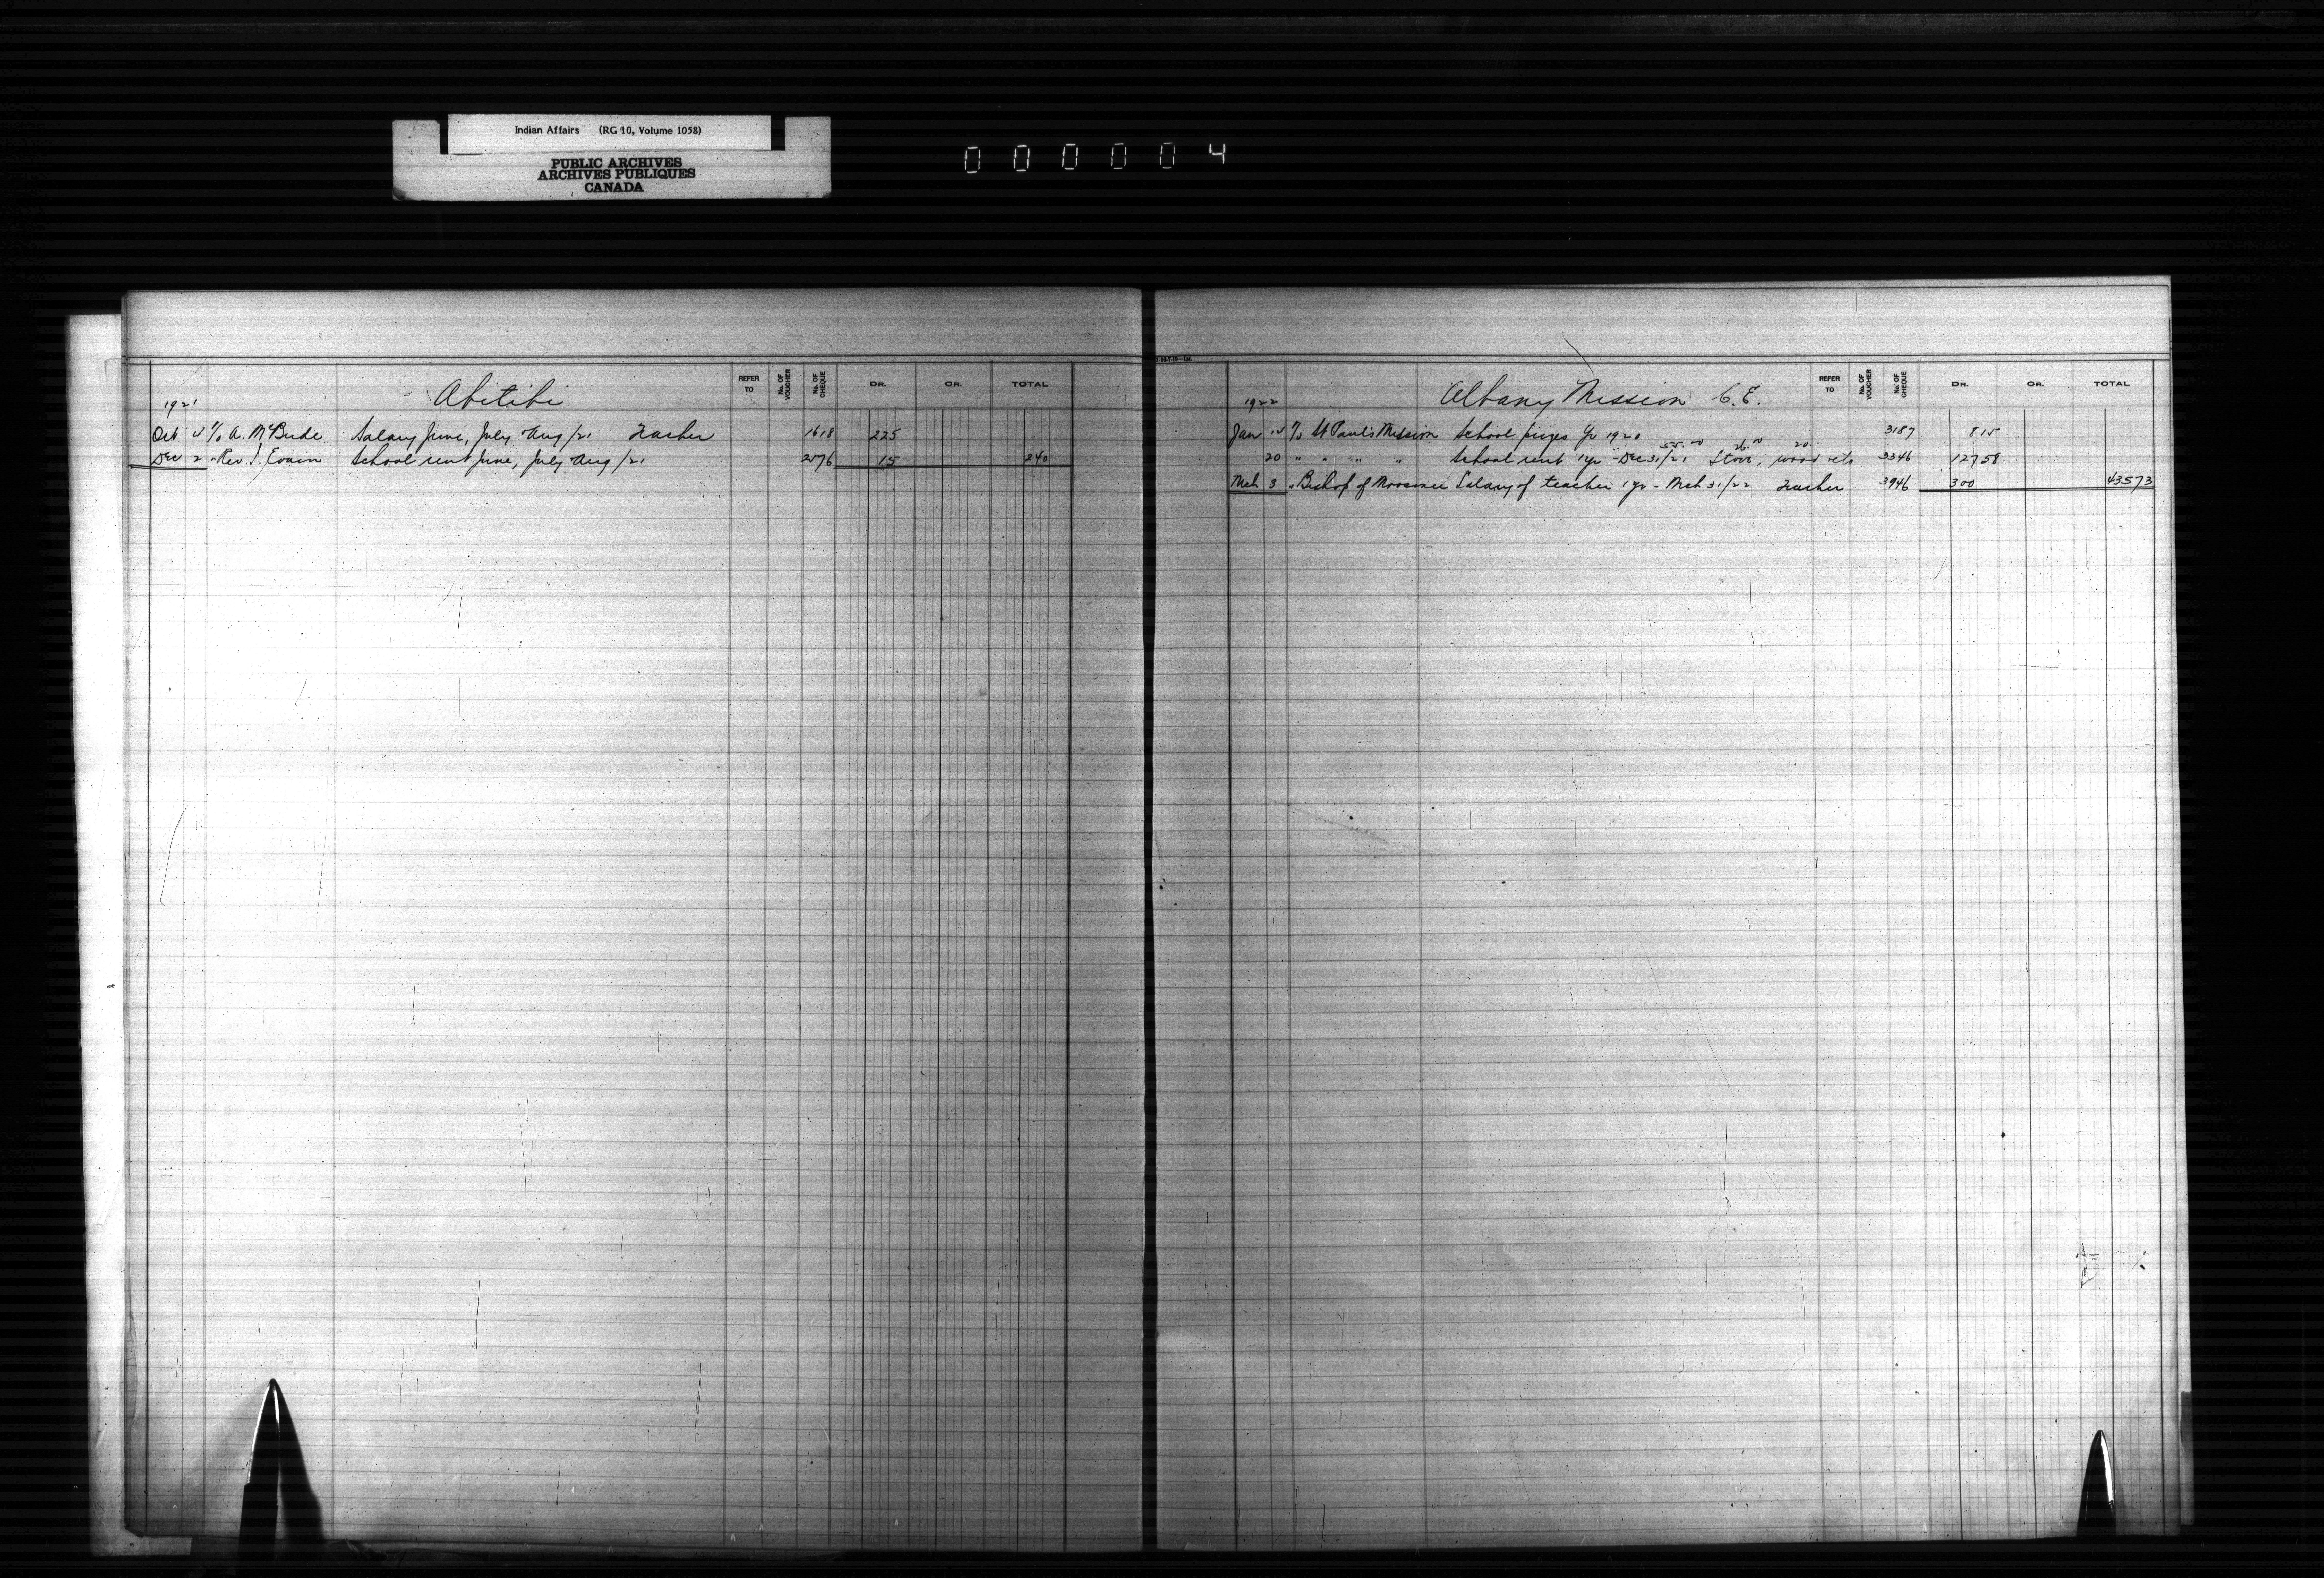 Indian Affairs (RG 10, Volume 1058)
PUBLIC ARCHIVES
ARCHIVES PUBLIQUES
CANADA
000004
1921 Abitibi REFER TO No. OF VOUCHER No. OF CHEQUE DR. CR. TOTAL
Oct 4 To A. McBride Salary June, July Aug /21 Teacher 1618 225
Dec 2 " Rev. J. Evain School rent June, July Aug /21 2576 15 240
1922 Albany Mission C.E. REFER TO No. OF VOUCHER No. OF CHEQUE DR. CR. TOTAL
Jan 14 To St Paul's Mission School prizes Yr 1920 3187 815
55.00 26.00 20.
20 " " " " School rent 1 yr - Dec 31/21 Stove, wood etc 3346 12758
Mch 3 " Bishop of Moosonee Salary of teacher 1 yr - Mch 31/22 Teacher 3946 300 43573